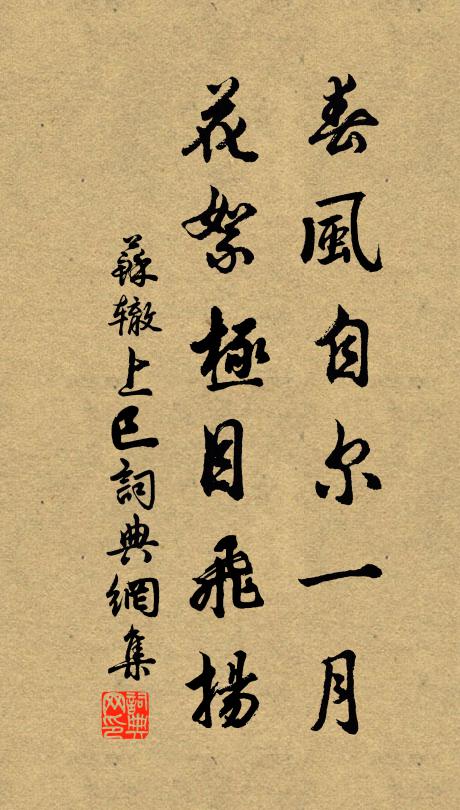 春風自尔一月
花絮極目飛揚
蘇辙上巳詞典網集
詞典网印